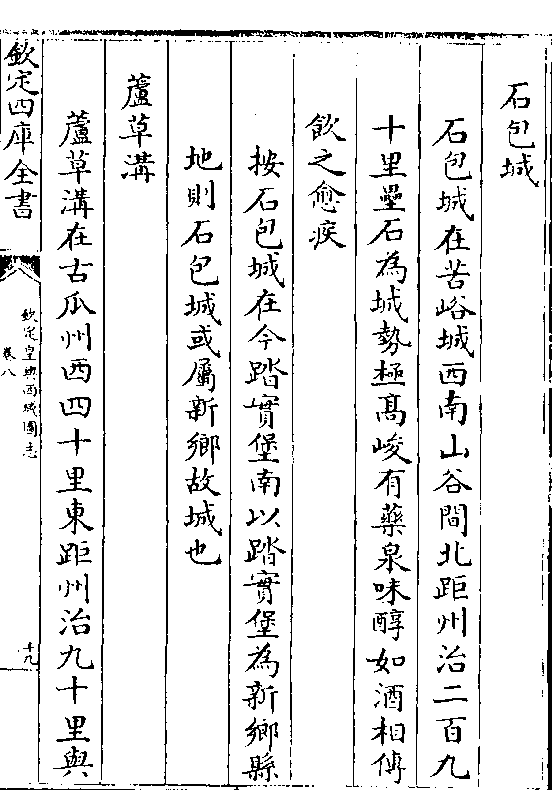 石包城
石包城在苦峪城西南山谷間北距州治二百九
十里壘石為城勢極高峻有藥泉味醇如酒相傳
飲之愈疾
按石包城在今踏實堡南以踏實堡為新鄉縣
地則石包城或屬新鄉故城也
蘆草溝
蘆草溝在古瓜州西四十里東距州治九十里與
欽定四庫全書
欽定皇輿西域圖志
卷八
十九